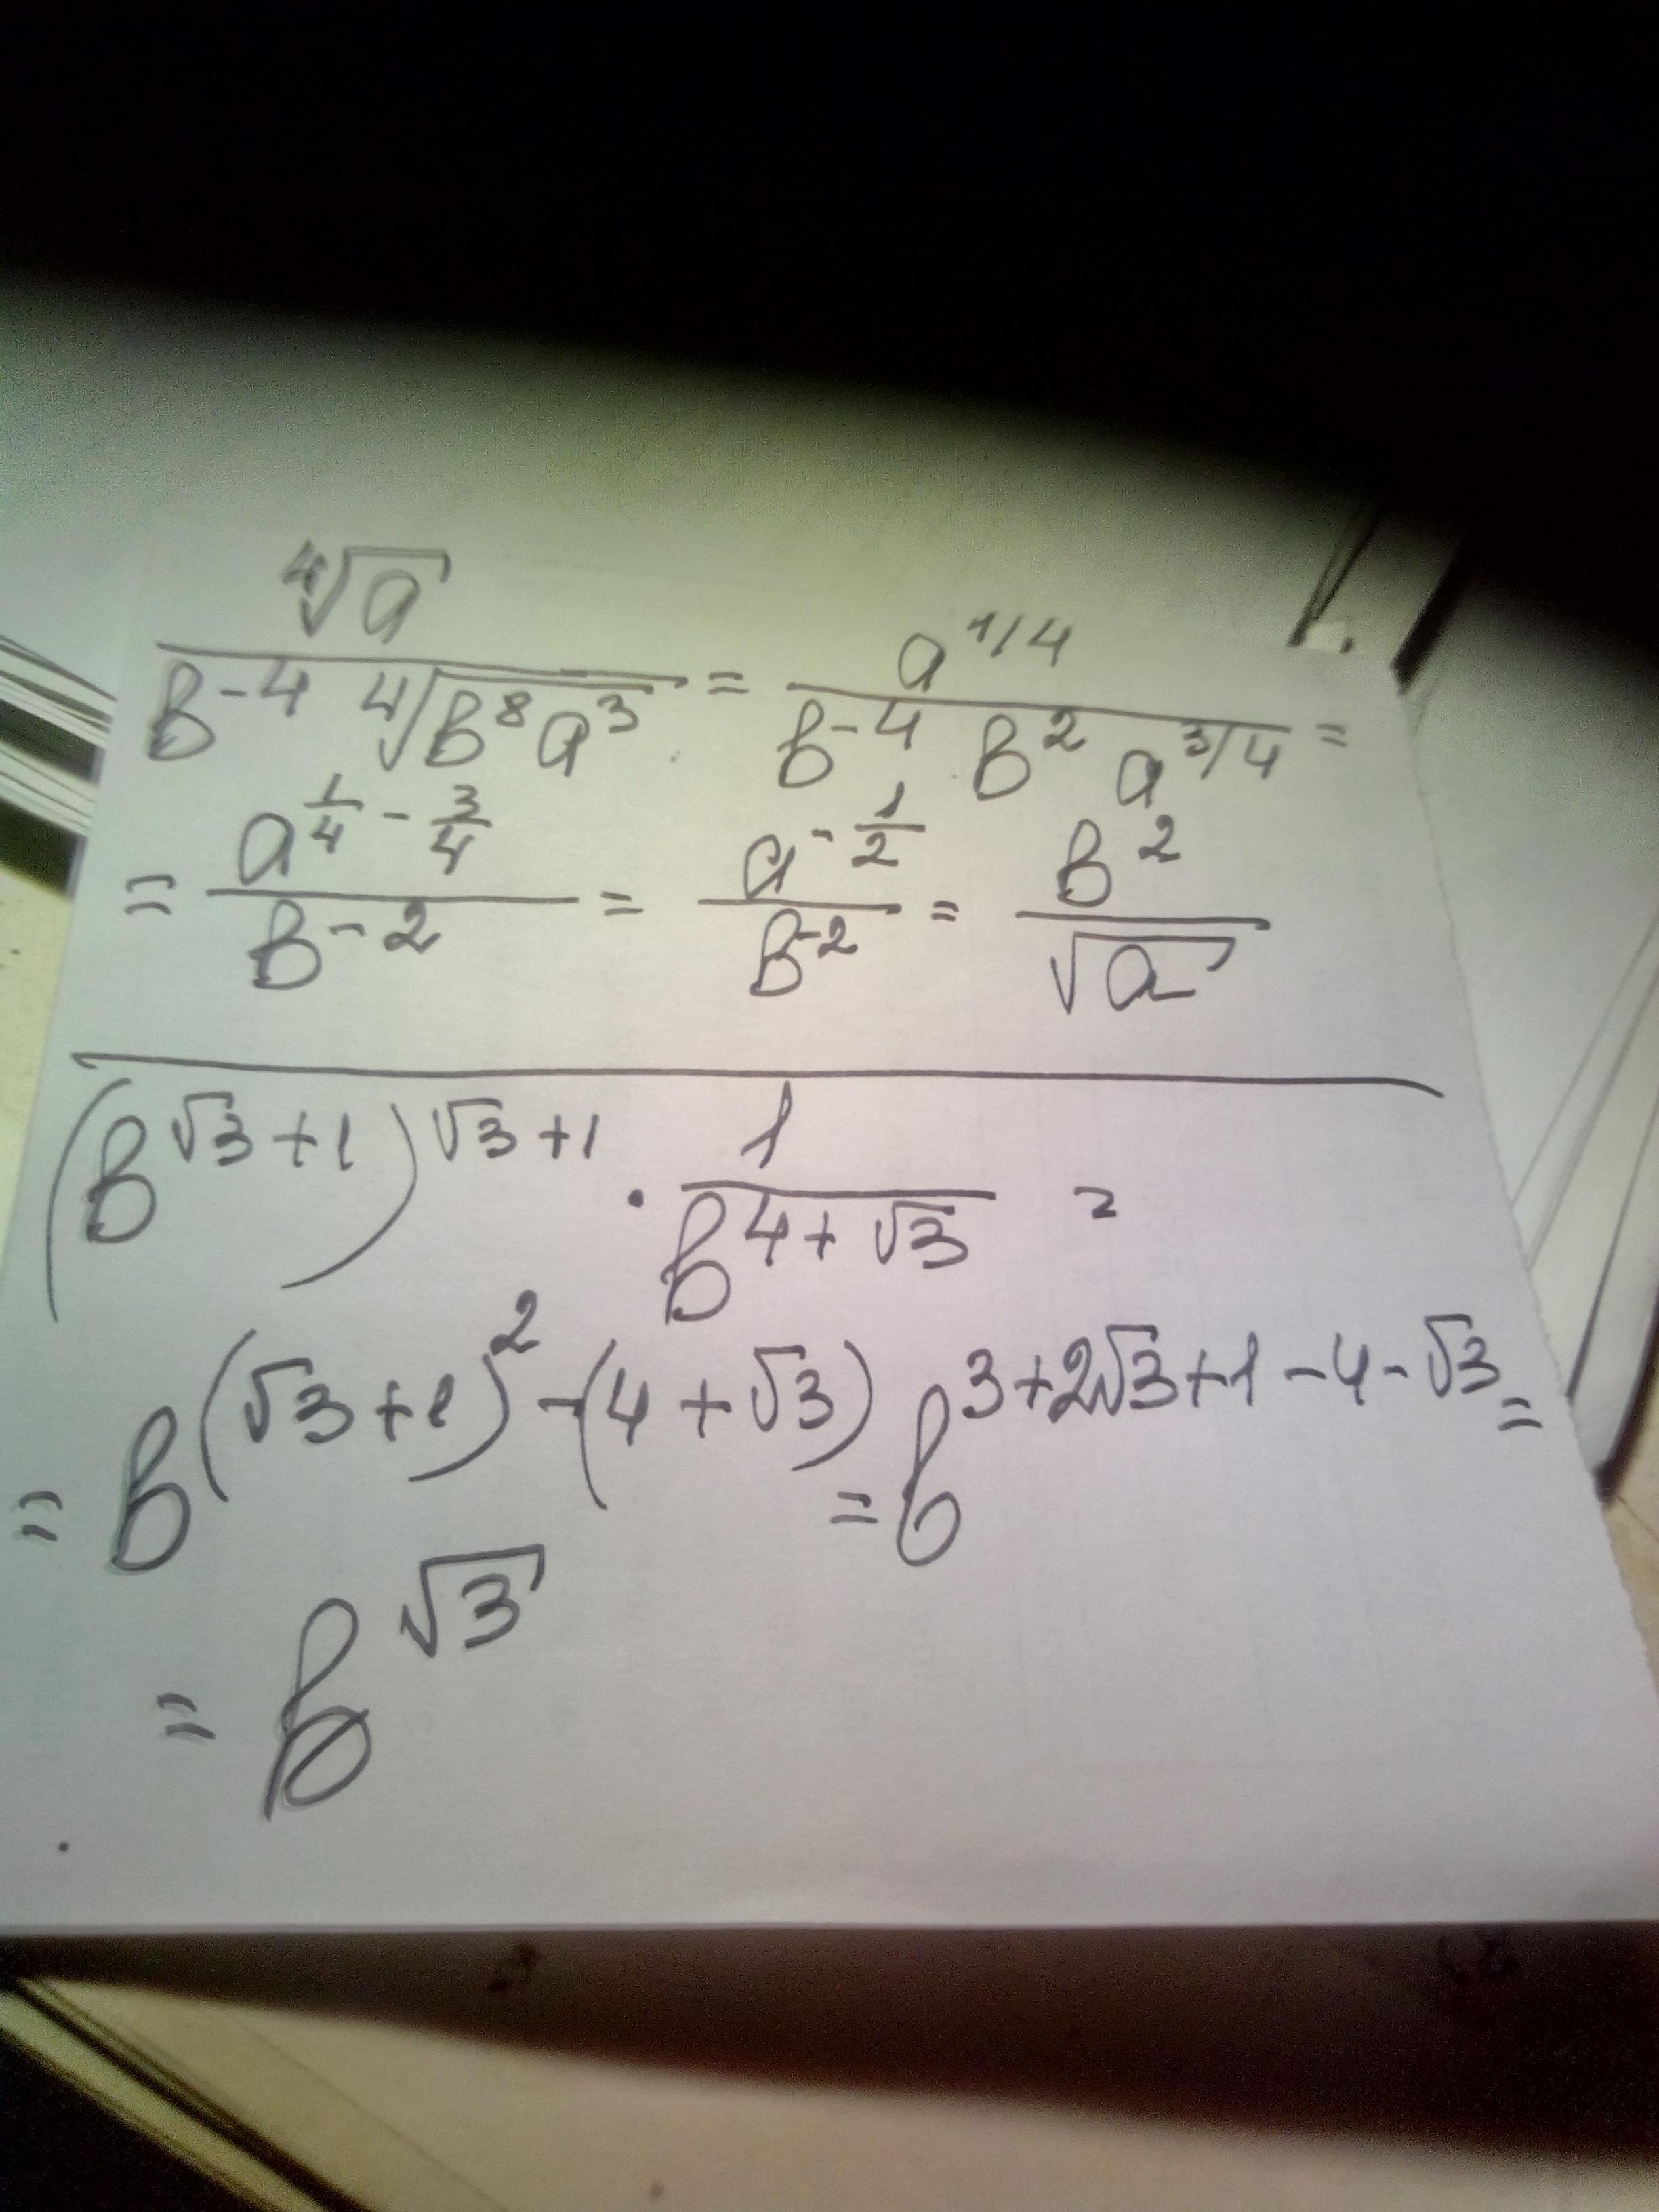 ⁴√a / (b⁻⁴ ⁴√(b⁸a³)) = a^(1/4) / (b⁻⁴ b² a^(3/4)) =
= a^(1/4 - 3/4) / b⁻² = a^(-1/2) / b⁻² = b² / √a
(b^(√3+1))^(√3+1) · 1 / b^(4+√3) =
= b^((√3+1)² - (4+√3)) = b^(3+2√3+1-4-√3) =
= b^(√3)